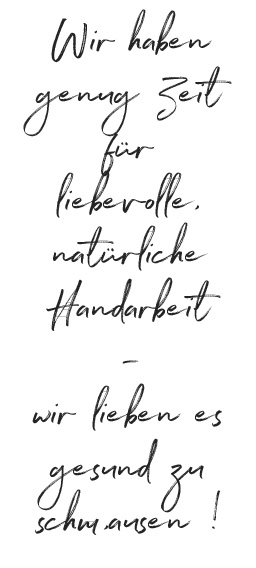 Wir haben
genug Zeit
für
liebevolle,
natürliche
Handarbeit
-
wir lieben es
gesund zu
schm.ausen !